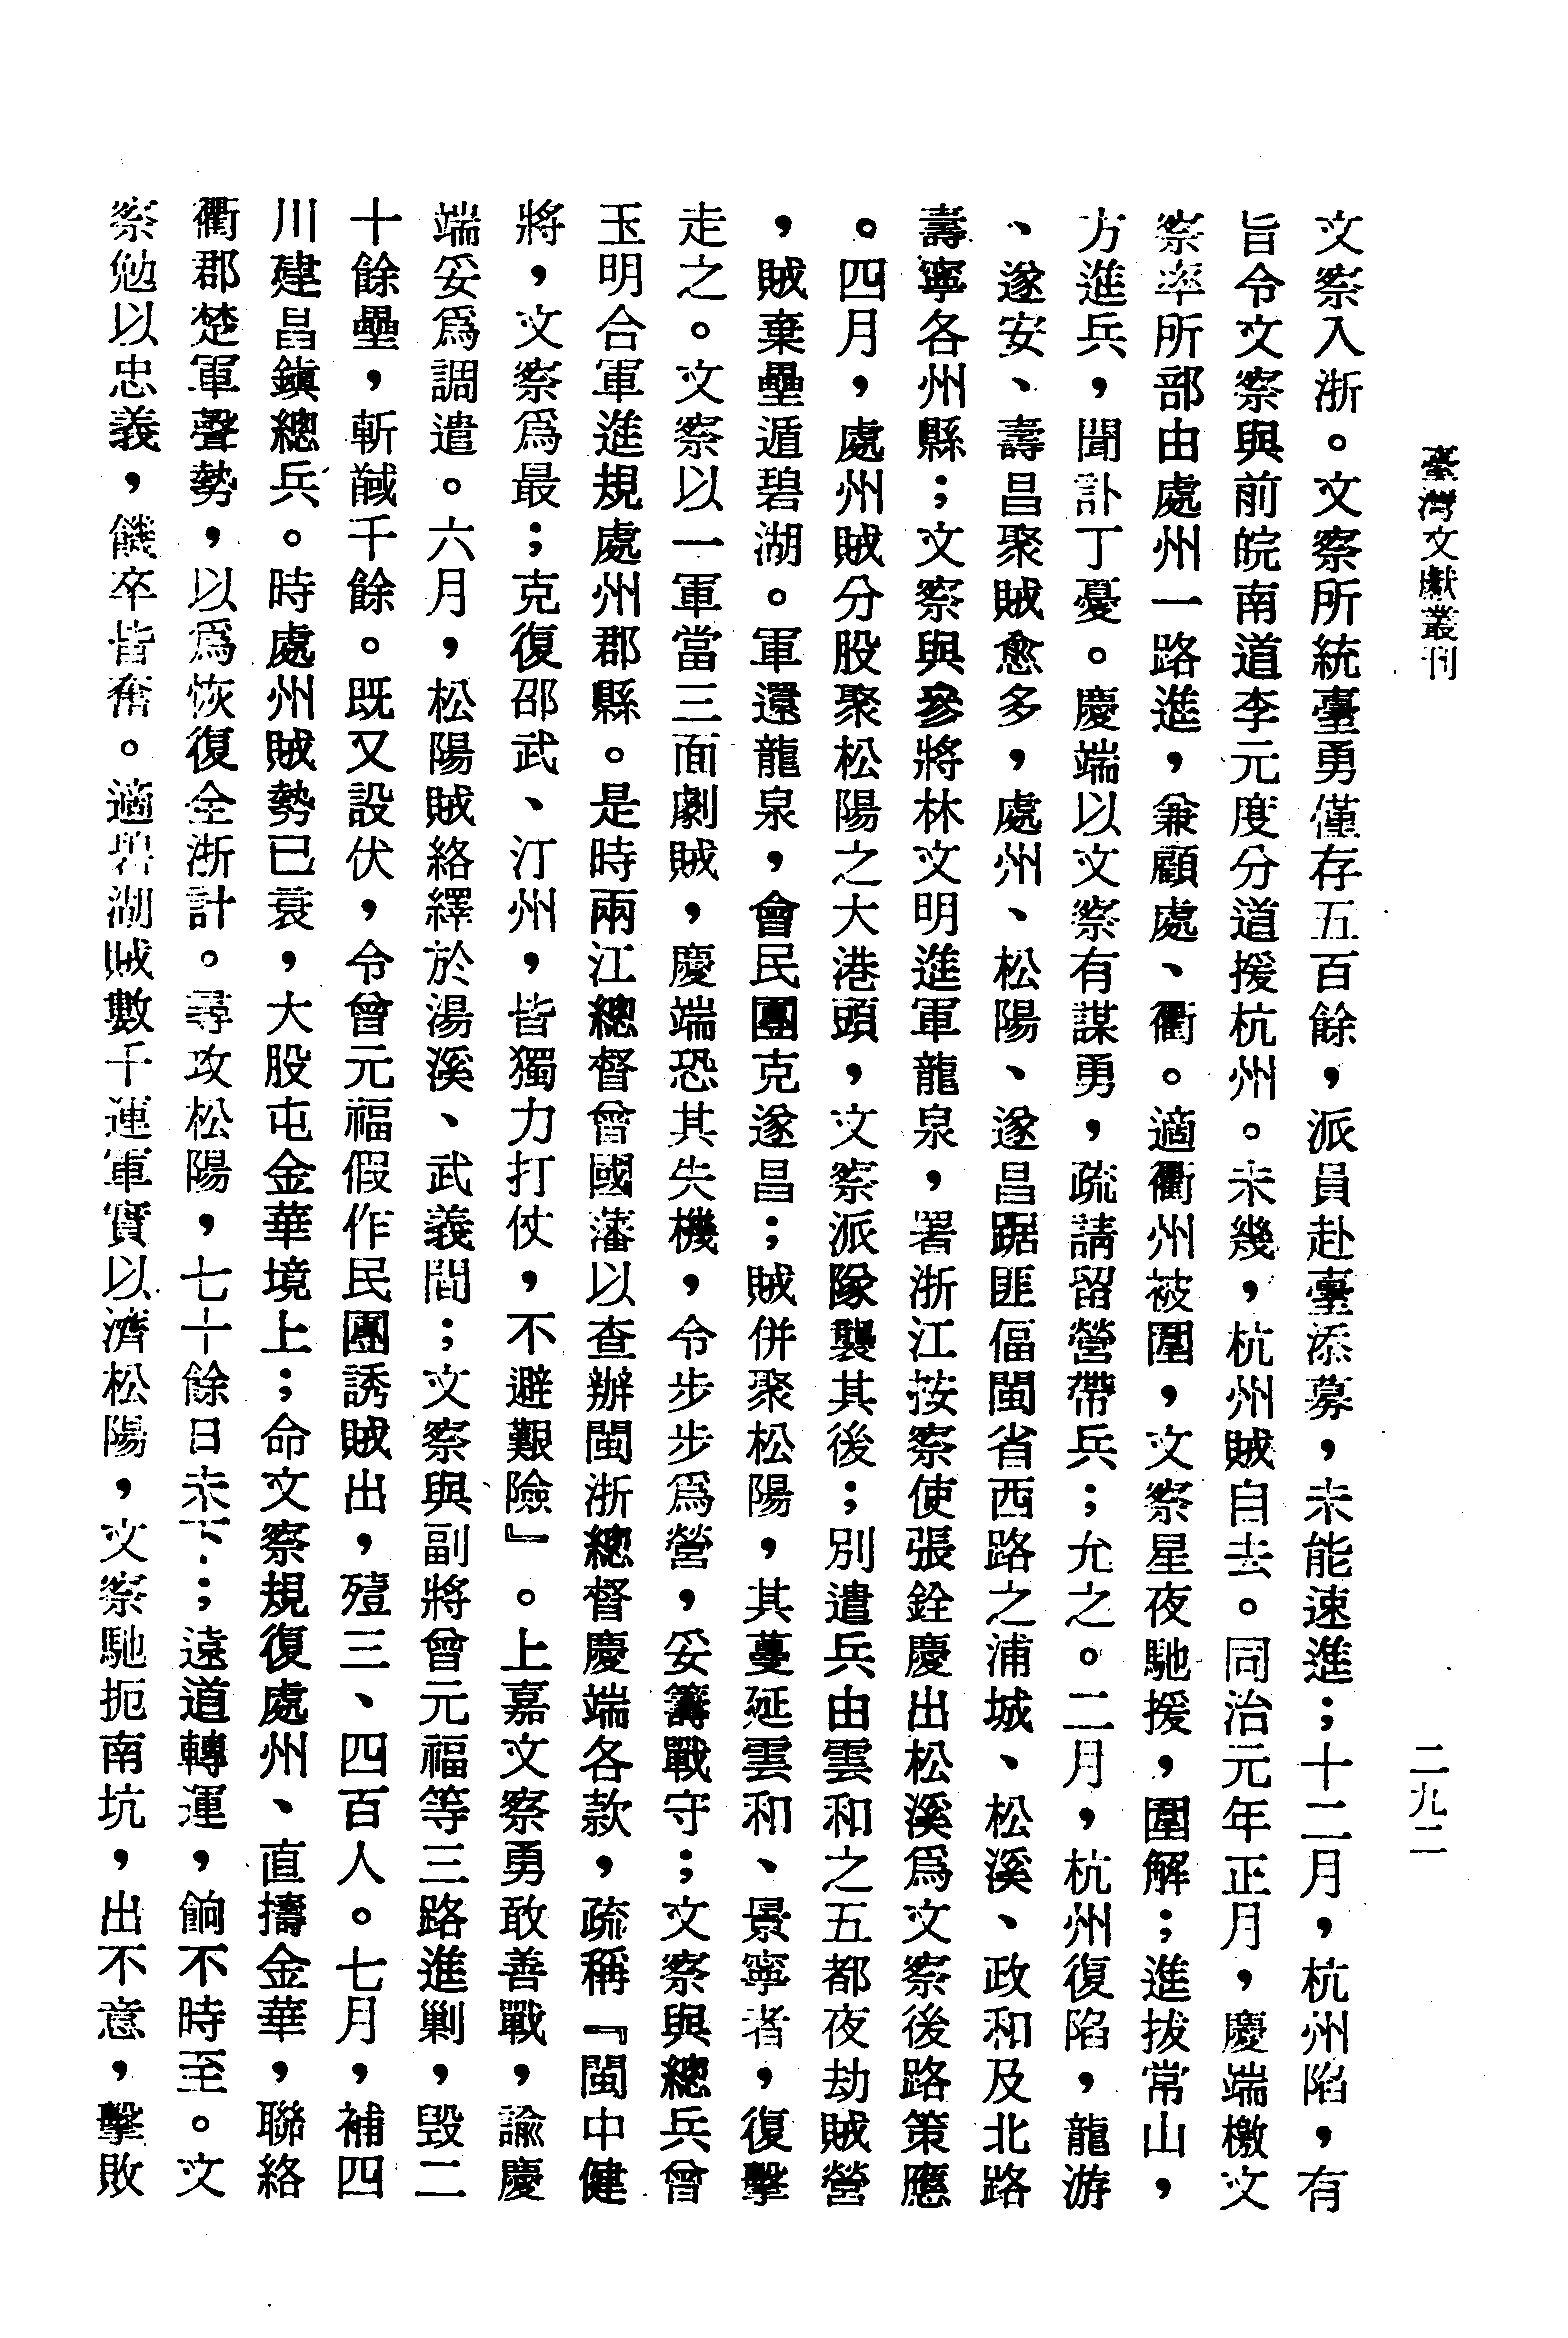 臺灣文獻叢刊
二九二
文察入浙。文察所統臺勇僅存五百餘，派員赴臺添募，未能速進；十二月，杭州陷，有
旨令文察與前皖南道李元度分道援杭州。未幾，杭州賊自去。同治元年正月，慶端檄文
察率所部由處州一路進，兼顧處、衢。適衢州被圍，文察星夜馳援，圍解；進拔常山，
方進兵，聞訃丁憂。慶端以文察有謀勇，疏請留營帶兵；允之。二月，杭州復陷，龍游
、遂安、壽昌聚賊愈多，處州、松陽、遂昌踞匪偪閩省西路之浦城、松溪、政和及北路
壽寧各州縣；文察與參將林文明進軍龍泉，署浙江按察使張銓慶出松溪爲文察後路策應
。四月，處州賊分股聚松陽之大港頭，文察派隊襲其後；別遣兵由雲和之五都夜劫賊營
，賊棄壘遁碧湖。軍還龍泉，會民團克遂昌；賊併聚松陽，其蔓延雲和、景寧者，復擊
走之。文察以一軍當三面劇賊，慶端恐其失機，令步步爲營，妥籌戰守；文察與總兵曾
玉明合軍進規處州郡縣。是時兩江總督曾國藩以查辦閩浙總督慶端各款，疏稱『閩中健
將，文察爲最；克復邵武、汀州，皆獨力打仗，不避艱險』。上嘉文察勇敢善戰，諭慶
端妥爲調遣。六月，松陽賊絡繹於湯溪、武義間；文察與副將曾元福等三路進剿，毀二
十餘壘，斬馘千餘。既又設伏，令曾元福假作民團誘賊出，殪三、四百人。七月，補四
川建昌鎮總兵。時處州賊勢已衰，大股屯金華境上；命文察規復處州、直擣金華，聯絡
衢郡楚軍聲勢，以爲恢復全浙計。尋攻松陽，七十餘日未下；遠道轉運，餉不時至。文
察勉以忠義，饑卒皆奮。適碧湖賊數千運軍實以濟松陽，文察馳扼南坑，出不意，擊敗